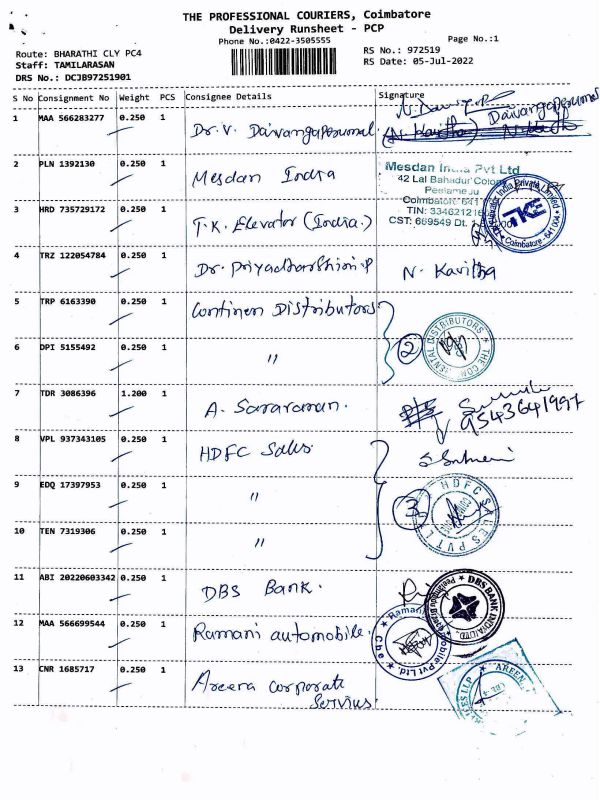 THE PROFESSIONAL COURIERS, Coimbatore
Delivery Runsheet - PCP
Phone No.:0422-3505555
Page No.:1
Route: BHARATHI CLY PC4
RS No.: 972519
Staff: TAMILARASAN
RS Date: 05-Jul-2022
DRS No.: DCJB97251901
S No Consignment No Weight PCS Consignee Details Signature
1 MAA 566283277 0.250 1 Dr. V. Daivangaperumal Daivangaperumal
(N. Kavitha)
2 PLN 1392130 0.250 1 Mesdan India
Mesdan India Pvt Ltd
42 Lal Bahadur Colony
Peelamedu
Coimbatore 641
TIN: 33462121
CST: 669549 Dt.
3 HRD 735729172 0.250 1 T.K. Elevator (India.)
Elevator India Private Limited
TKE
Coimbatore - 641 04
4 TRZ 122054784 0.250 1 Dr. Priyadharshini.P N. Kavitha
5 TRP 6163390 0.250 1 Continen Distributors
6 DPI 5155492 0.250 1 " 2
DISTRIBUTORS * THE CON
7 TDR 3086396 1.200 1 A. Sararaman.
9543641997
8 VPL 937343105 0.250 1 HDFC Sales.
9 EDQ 17397953 0.250 1 " 3
HDFC SALES PVT L
10 TEN 7319306 0.250 1 "
11 ABI 20220603342 0.250 1 DBS Bank.
DBS BANK INDIA LTD
12 MAA 566699544 0.250 1 Ramani automobile.
Ramani
mobile Pvt Ltd. * Che
13 CNR 1685717 0.250 1 Areera Corporate
Servius.
AREEN
CES LLP
CBE - 4